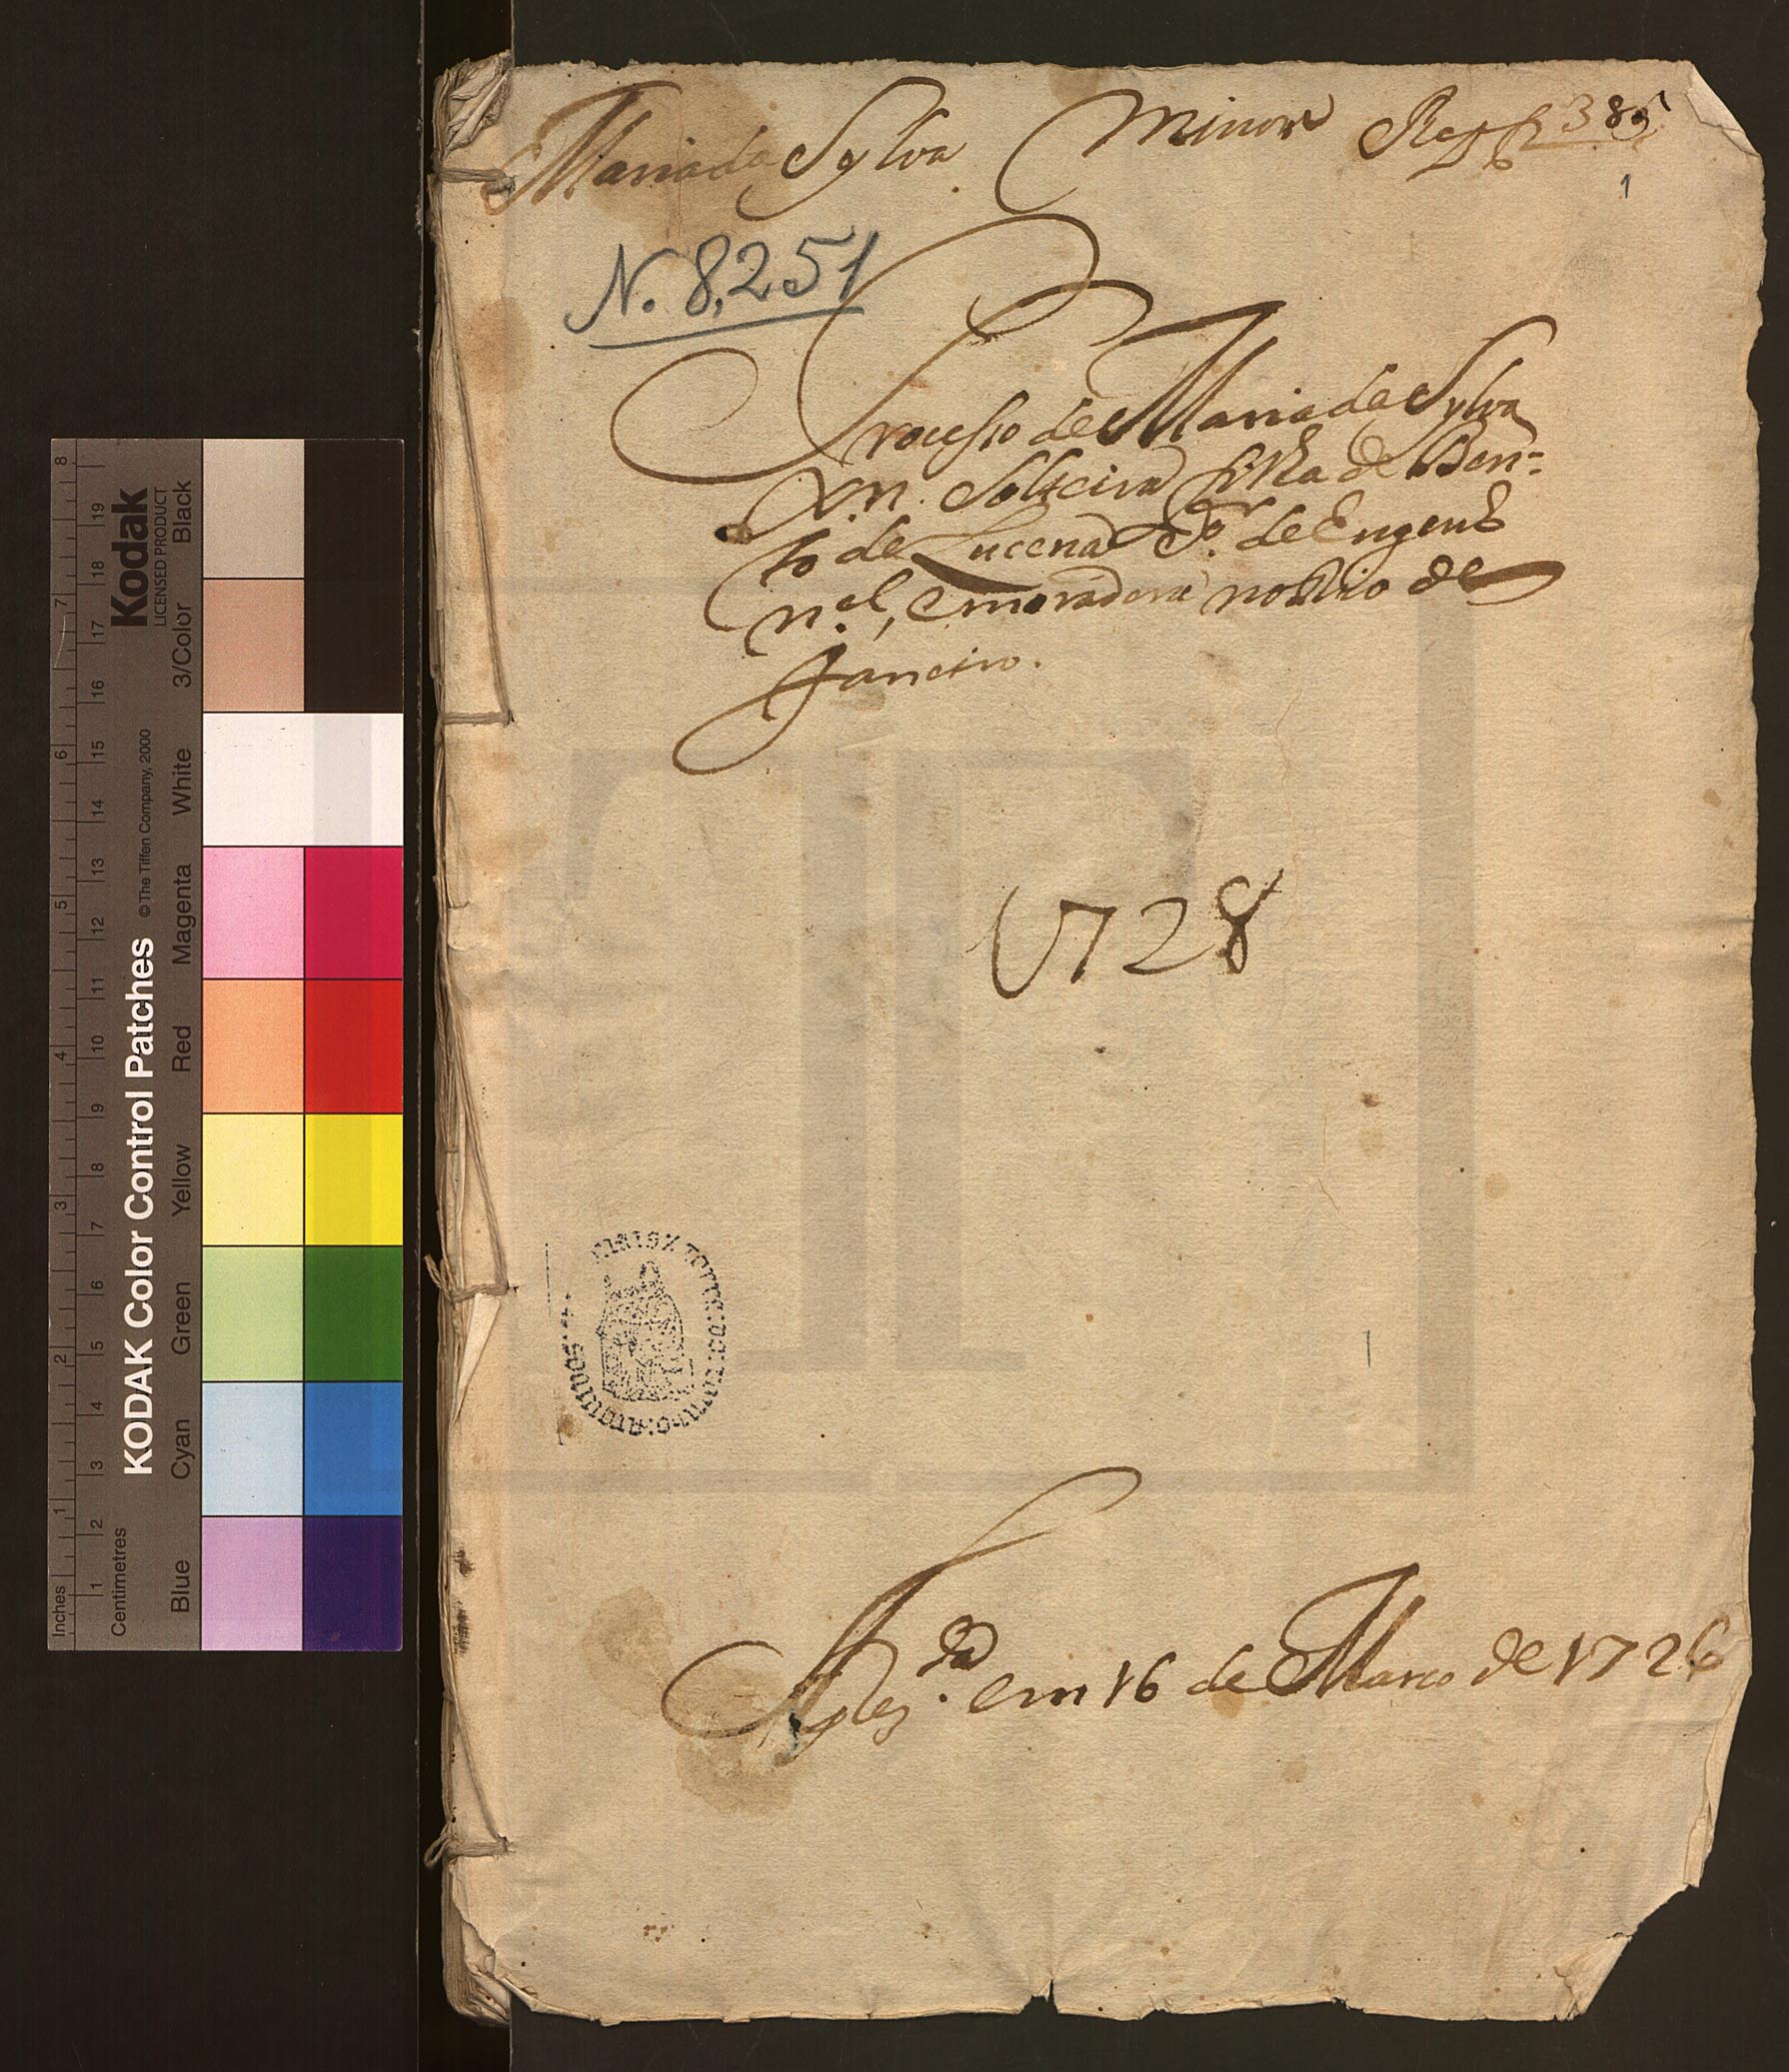 Maria da Sylva Menor Reg fl 385
1
N. 8,251
Processo de Maria da Sylva
X.n. Solteira filha de Ben=
to de Lucena S.or de Engenho
n.el, e moradora no Rio de
Janeiro.
1728
Aprez.da em 16 de Marco de 1726
ARQUIVOS
KODAK Color Control Patches
©The Tiffen Company, 2000
Kodak
LICENSED PRODUCT
Inches 1 2 3 4 5 6 7 8
Centimetres 1 2 3 4 5 6 7 8 9 10 11 12 13 14 15 16 17 18 19
Blue Cyan Green Yellow Red Magenta White 3/Color Black